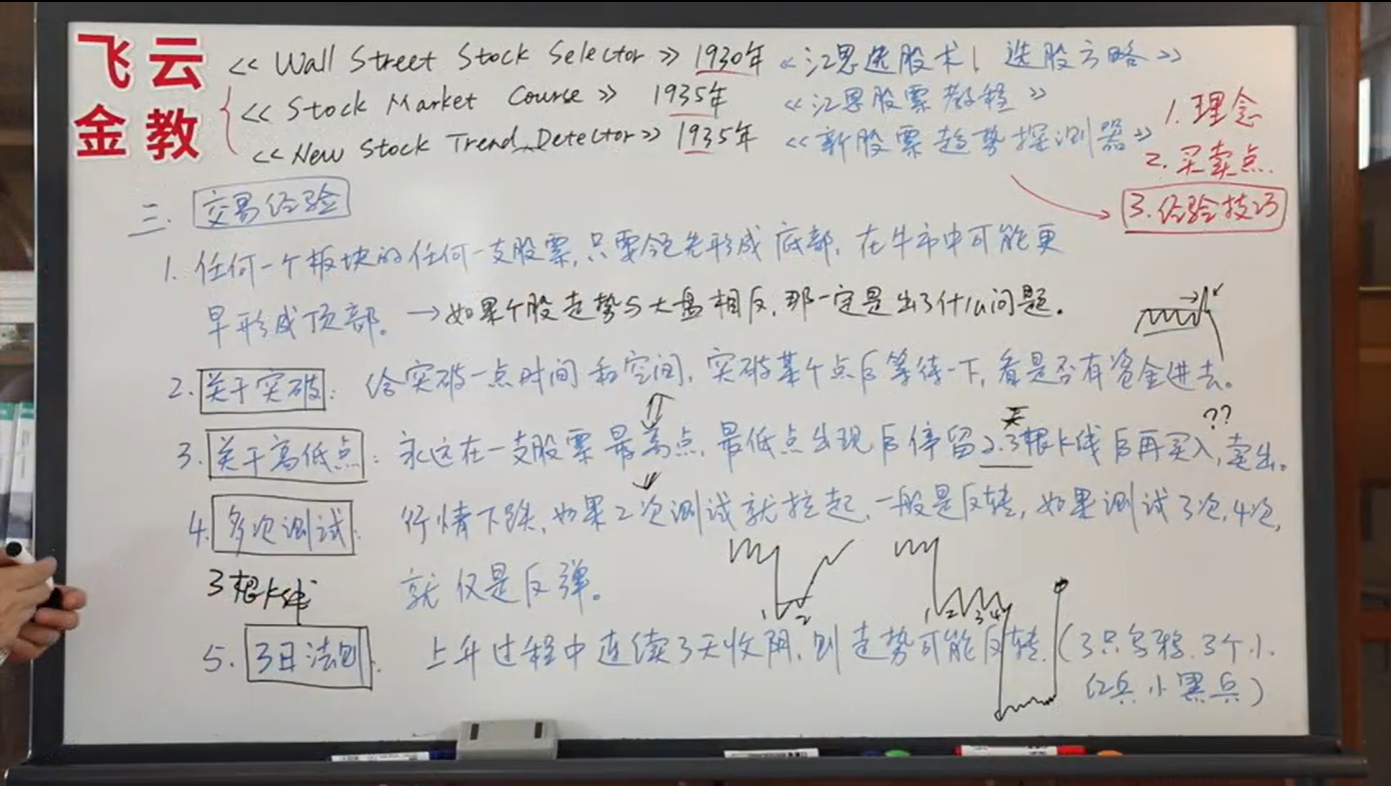 飞云
金教
<< Wall Street Stock Selector >> 1930年 <<江恩选股术| 选股方略>>
<< Stock Market Course >> 1935年 <<江恩股票教程>>
<<New Stock Trend Detector>> 1935年 <<新股票趋势探测器>>
1. 理念
2. 买卖点.
3. 经验技巧
三. 交易经验
1. 任何一个板块的任何一支股票,只要领先形成底部,在牛市中可能更
早形成顶部。→如果个股走势与大盘相反,那一定是出了什么问题.
2. 关于突破: 给突破一点时间和空间,突破某个点后等待一下,看是否有资金进去。
天 ??
3. 关于高低点: 永远在一支股票最高点,最低点出现后停留2.3根K线后再买入,卖出。
4. 多次测试: 行情下跌,如果2次测试就拉起,一般是反转,如果测试3次,4次,
就仅是反弹。
1 2 1 2 3 4
3根K线
5. 3日法则: 上升过程中连续3天收阴,则走势可能反转.(3只乌鸦.3个小
红兵小黑兵)